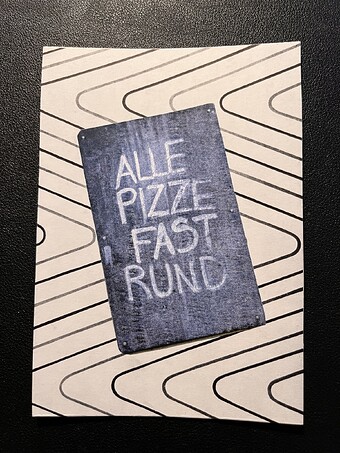 ALLE
PIZZE
FAST
RUND